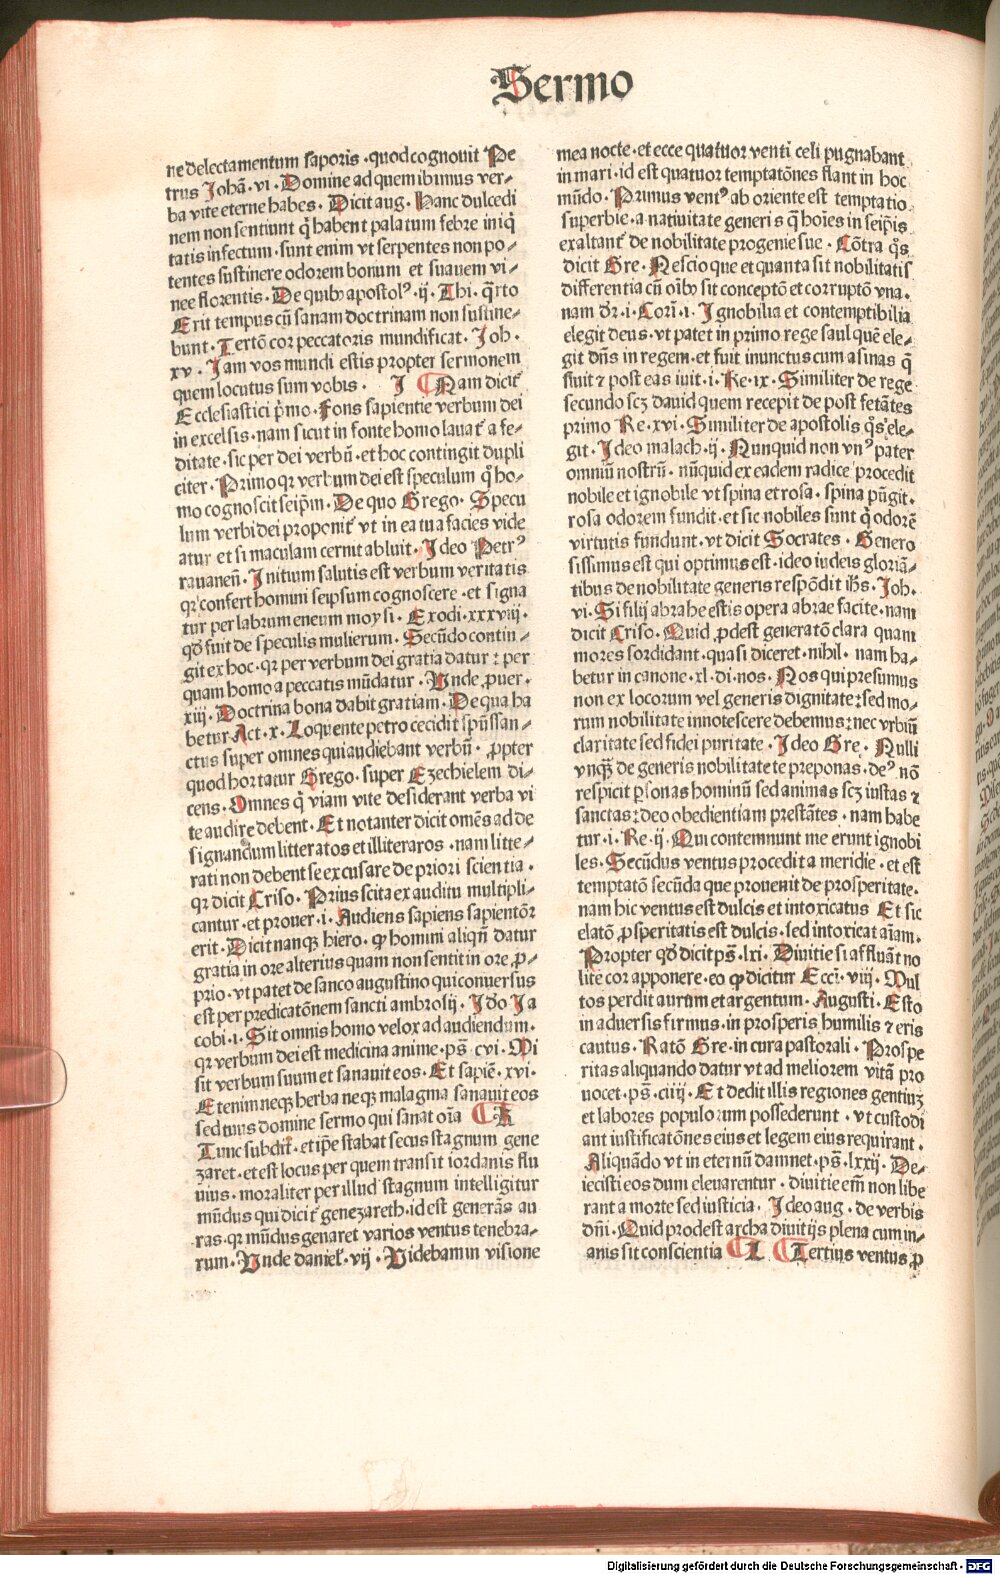 Sermo
ne delectamentum saporis · quod cognouit Pe
trus Johā · vi · Domine ad quem ibimus ver⸗
ba vite eterne habes · Dicit aug · Hanc dulcedi
nem non sentiunt q̄ habent palatum febre iniq̄
tatis infectum · sunt enim vt serpentes non po⸗
tentes sustinere odorem bonum et suauem vi⸗
nee florentis · De quibꝰ apostolꝰ · ij · Thi · q̄rto
Erit tempus cū sanam doctrinam non sustine⸗
bunt · Tertō cor peccatoris mundificat · Joh ·
xv · Jam vos mundi estis propter sermonem
quem locutus sum vobis · J Nam dicit̄
Ecclesiastici p̄mo · Fons sapientie verbum dei
in excelsis · nam sicut in fonte homo lauat̄ a fe⸗
ditate · sic per dei verbū · et hoc contingit dupli
citer · Primo qr verbum dei est speculum q̄ ho⸗
mo cognoscit seip̄m · De quo Grego · Specu
lum verbi dei proponit̄ vt in ea tua facies vide
atur et si maculam cernit abluit · Ideo Petrꝰ
rauanen̄ · Initium salutis est verbum veritatis
qr confert homini seipsum cognoscere · et signa
tur per labrum eneum moysi · Exodi · xxxviij ·
qd̄ fuit de speculis mulierum · Secūdo contin⸗
git ex hoc · qr per verbum dei gratia datur : per
quam homo a peccatis mūdatur · Vnde ꝓuer ·
xiij · Doctrina bona dabit gratiam · De qua ha
betur Act · x · Loquente petro cecidit sp̄ūssan⸗
ctus super omnes qui audiebant verbū · ꝓpter
quod hortatur Grego · super Ezechielem di⸗
cens · Omnes q̄ viam vite desiderant verba vi
te audire debent · Et notanter dicit om̄es ad de
signandum litteratos et illiteraros · nam litte⸗
rati non debent se excusare de priori scientia ·
qr dicit Criso · Prius scita ex auditu multipli⸗
cantur · et prouer · i · Audiens sapiens sapientōr
erit · Dicit nanqꝫ hiero · ꝙ homini aliqn̄ datur
gratia in ore alterius quam non sentit in ore ꝓ⸗
prio · vt patet de sanco augustino qui conuersus
est per predicatōnem sancti ambrosij · Jdo Ja
cobi · i · Sit omnis homo velox ad audiendum ·
qr verbum dei est medicina anime · ps̄ cvi · Mi
sit verbum suum et sanauit eos · Et sapiē · xvi ·
Etenim neqꝫ herba neqꝫ malagma sanauit eos
sed tuus domine sermo qui sanat oīa K
Tunc subdit̄ · et ip̄e stabat secus stagnum gene
zaret · et est locus per quem transit iordanis flu
uius · moraliter per illud stagnum intelligitur
mūdus qui dicit̄ genezareth · id est generās au
ras · qr mūdus genaret varios ventus tenebra⸗
rum · Vnde daniel̄ · vij · Videbam in visione
mea nocte · et ecce quatuor venti celi pugnabant
in mari · id est quatuor temptatōnes flant in hoc
mūdo · Primus ventꝰ ab oriente est temptatio
superbie · a natiuitate generis q̄ hoīes in seip̄is
exaltant̄ de nobilitate progenie sue · Cōtra q̄s
dicit Gre · Nescio que et quanta sit nobilitatis
differentia cū oībꝰ sit conceptō et corruptō vna ·
nam dr̄ · i · Cori · i · Ignobilia et contemptibilia
elegit deus · vt patet in primo rege saul quē ele⸗
git dn̄s in regem · et fuit inunctus cum asinas q̄
siuit ⁊ post eas iuit · i · Re · ix · Similiter de rege
secundo scꝫ dauid quem recepit de post fetātes
primo Re · xvi · Similiter de apostolis q̄s ele⸗
git · Ideo malach · ij · Nunquid non vnꝰ pater
omniū nostrū · nūquid ex eadem radice procedit
nobile et ignobile vt spina et rosa · spina pūgit ·
rosa odorem fundit · et sic nobiles sunt q̄ odorē
virtutis fundunt · vt dicit Socrates · Genero
sissimus est qui optimus est · ideo iudeis gloriā⸗
tibus de nobilitate generis respōdit ih̄s · Joh ·
vi · Si filij abrahe estis opera abrae facite · nam
dicit Criso · Quid ꝓdest generatō clara quam
mores sordidant · quasi diceret · nihil · nam ha⸗
betur in canone · xl · di · nos · Nos qui presumus
non ex locorum vel generis dignitate : sed mo⸗
rum nobilitate innotescere debemus : nec vrbiū
claritate sed fidei puritate · Ideo Gre · Nulli
vnqꝫ de generis nobilitate te preponas · deꝰ nō
respicit ꝑsonas hominū sed animas scꝫ iustas ⁊
sanctas : deo obedientiam prestātes · nam habe
tur · i · Re · ij · Qui contemnunt me erunt ignobi
les · Secūdus ventus procedit a meridie · et est
temptatō secūda que prouenit de prosperitate ·
nam hic ventus est dulcis et intoxicatus Et sic
elatō ꝓsperitatis est dulcis · sed intoxicat aīam ·
Propter qd̄ dicit ps̄ · lxi · Diuitie si affluāt no
lite cor apponere · eo ꝙ dicitur Ecci · viij · Mul
tos perdit aurum et argentum · Augusti · Esto
in aduersis firmus · in prosperis humilis ⁊ eris
cautus · Ratō Gre · in cura pastorali · Prospe
ritas aliquando datur vt ad meliorem vitā pro
uocet · ps̄ · ciiij · Et dedit illis regiones gentiuꝫ
et labores populorum possederunt · vt custodi
ant iustificatōnes eius et legem eius requirant ·
Aliquādo vt in eternū damnet · ps̄ · lxxij · De⸗
iecisti eos dum eleuarentur · diuitie em̄ non libe
rant a morte sed iusticia · Ideo aug · de verbis
dn̄i · Quid prodest archa diuitijs plena cum in⸗
anis sit conscientia L Tertius ventus ꝓ
Digitalisierung gefördert durch die Deutsche Forschungsgemeinschaft - DFG